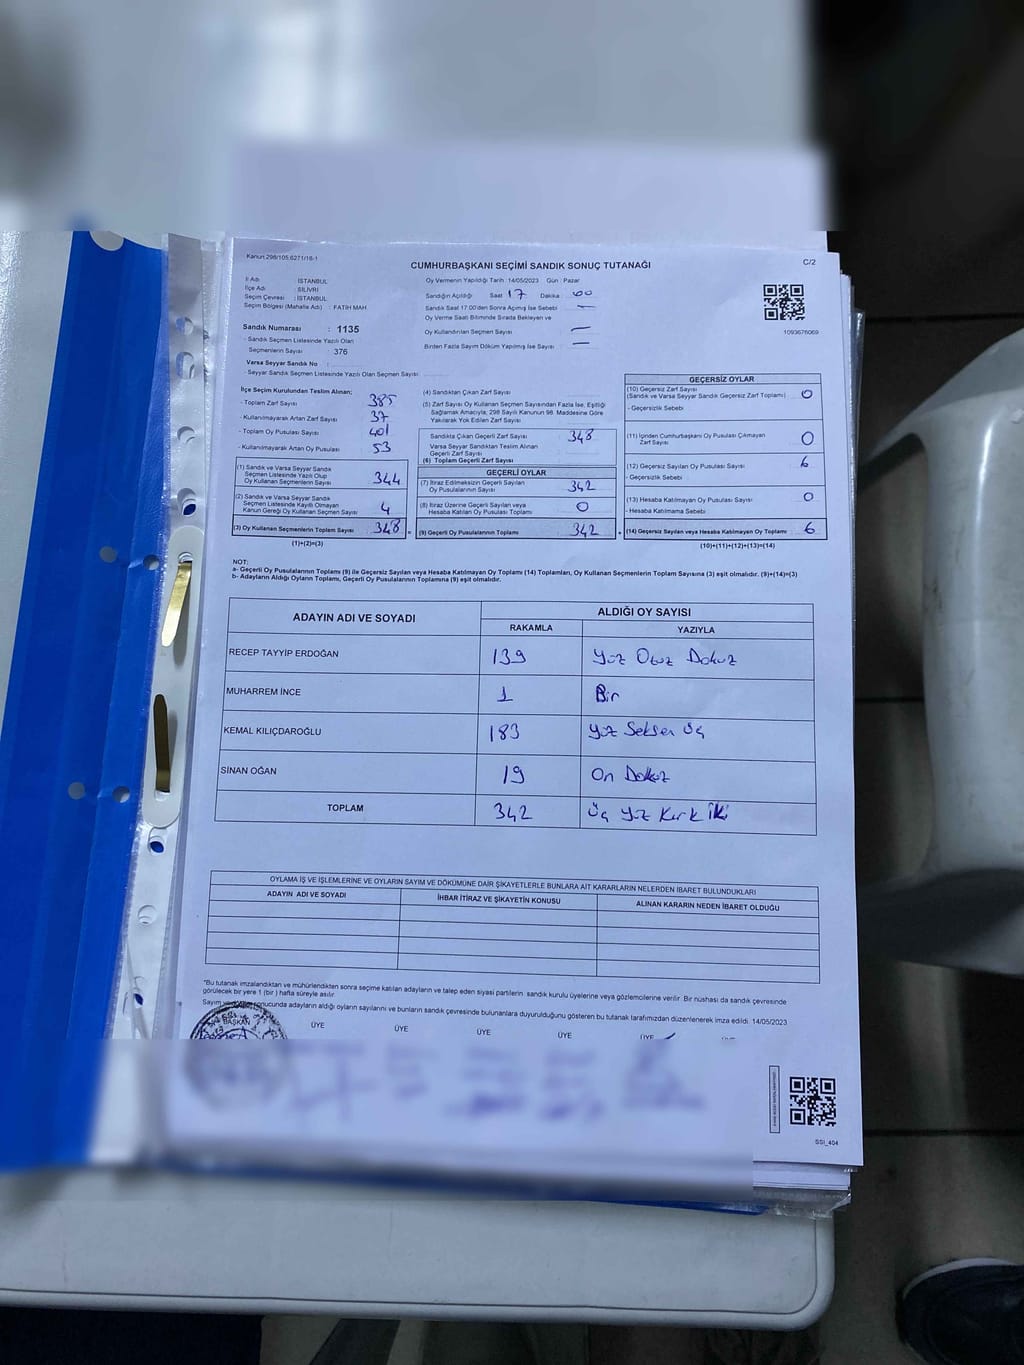 Kanun 298/105;6271/16-1
C/2
CUMHURBAŞKANI SEÇİMİ SANDIK SONUÇ TUTANAĞI
İl Adı : İSTANBUL
İlçe Adı : SİLİVRİ
Seçim Çevresi : İSTANBUL
Seçim Bölgesi (Mahalle Adı) : FATİH MAH
Sandık Numarası : 1135
- Sandık Seçmen Listesinde Yazılı Olan
Seçmenlerin Sayısı : 376
Varsa Seyyar Sandık No :
- Seyyar Sandık Seçmen Listesinde Yazılı Olan Seçmen Sayısı
Oy Vermenin Yapıldığı Tarih :14/05/2023 Gün : Pazar
Sandığın Açıldığı Saat 17 Dakika 00
Sandık Saat 17.00'den Sonra Açılmış İse Sebebi —
Oy Verme Saati Bitiminde Sırada Bekleyen ve
Oy Kullandırılan Seçmen Sayısı —
Birden Fazla Sayım Döküm Yapılmış İse Sayısı —
1093676069
İlçe Seçim Kurulundan Teslim Alınan;
- Toplam Zarf Sayısı 385
- Kullanılmayarak Artan Zarf Sayısı 37
- Toplam Oy Pusulası Sayısı 401
- Kullanılmayarak Artan Oy Pusulası 53
(1) Sandık ve Varsa Seyyar Sandık
Seçmen Listesinde Yazılı Olup
Oy Kullanan Seçmenlerin Sayısı 344
(2) Sandık ve Varsa Seyyar Sandık
Seçmen Listesinde Kayıtlı Olmayan
Kanun Gereği Oy Kullanan Seçmen Sayısı 4
(3) Oy Kullanan Seçmenlerin Toplam Sayısı 348 =
(1)+(2)=(3)
(4) Sandıktan Çıkan Zarf Sayısı
(5) Zarf Sayısı Oy Kullanan Seçmen Sayısından Fazla İse, Eşitliği
Sağlamak Amacıyla, 298 Sayılı Kanunun 98. Maddesine Göre
Yakılarak Yok Edilen Zarf Sayısı
Sandıkta Çıkan Geçerli Zarf Sayısı 348
Varsa Seyyar Sandıktan Teslim Alınan
Geçerli Zarf Sayısı
(6) Toplam Geçerli Zarf Sayısı
GEÇERLİ OYLAR
(7) İtiraz Edilmeksizin Geçerli Sayılan
Oy Pusulalarının Sayısı 342
(8) İtiraz Üzerine Geçerli Sayılan veya
Hesaba Katılan Oy Pusulalarının Toplamı 0
(9) Geçerli Oy Pusulalarının Toplamı 342 +
GEÇERSİZ OYLAR
(10) Geçersiz Zarf Sayısı
(Sandık ve Varsa Seyyar Sandık Geçersiz Zarf Toplamı) 0
- Geçersizlik Sebebi
(11) İçinden Cumhurbaşkanı Oy Pusulası Çıkmayan
Zarf Sayısı 0
(12) Geçersiz Sayılan Oy Pusulası Sayısı 6
- Geçersizlik Sebebi
(13) Hesaba Katılmayan Oy Pusulası Sayısı 0
- Hesaba Katılmama Sebebi
(14) Geçersiz Sayılan veya Hesaba Katılmayan Oy Toplamı 6
(10)+(11)+(12)+(13)=(14)
NOT:
a- Geçerli Oy Pusulalarının Toplamı (9) ile Geçersiz Sayılan veya Hesaba Katılmayan Oy Toplamı (14) Toplamları, Oy Kullanan Seçmenlerin Toplam Sayısına (3) eşit olmalıdır. (9)+(14)=(3)
b- Adayların Aldığı Oyların Toplamı, Geçerli Oy Pusulalarının Toplamına (9) eşit olmalıdır.
ADAYIN ADI VE SOYADI
ALDIĞI OY SAYISI
RAKAMLA YAZIYLA
RECEP TAYYİP ERDOĞAN 139 Yüz Otuz Dokuz
MUHARREM İNCE 1 Bir
KEMAL KILIÇDAROĞLU 183 Yüz Seksen Üç
SİNAN OĞAN 19 On Dokuz
TOPLAM 342 Üç Yüz Kırk İki
OYLAMA İŞ VE İŞLEMLERİNE VE OYLARIN SAYIM VE DÖKÜMÜNE DAİR ŞİKAYETLERLE BUNLARA AİT KARARLARIN NELERDEN İBARET BULUNDUKLARI
ADAYIN ADI VE SOYADI İHBAR İTİRAZ VE ŞİKAYETİN KONUSU ALINAN KARARIN NEDEN İBARET OLDUĞU
"Bu tutanak imzalandıktan ve mühürlendikten sonra seçime katılan adayların ve talep eden siyasi partilerin sandık kurulu üyelerine veya gözlemcilerine verilir. Bir nüshası da sandık çevresinde
görülecek bir yere 1 (bir) hafta süreyle asılır.
Sayım ve sonucunda adayların aldığı oyların sayılarını ve bunların sandık çevresinde bulunanlara duyurulduğunu gösteren bu tutanak tarafımızdan düzenlenerek imza edildi. 14/05/2023
BAŞKAN ÜYE ÜYE ÜYE ÜYE ÜYE
SSI_404